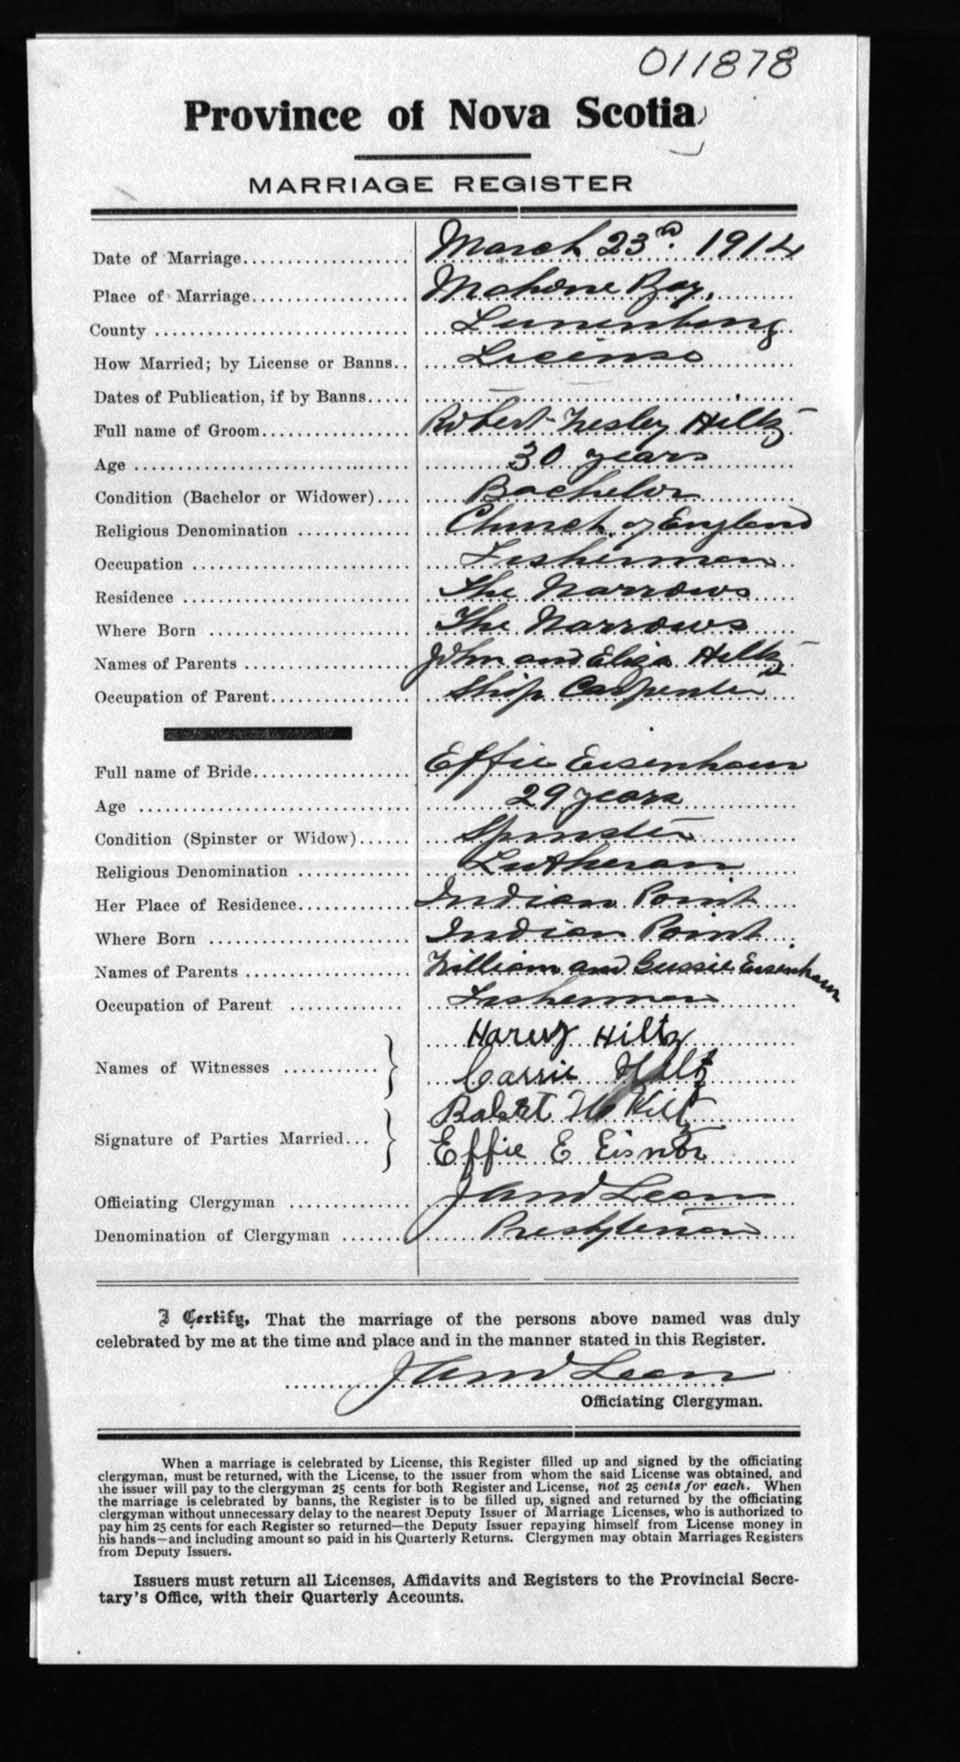 011878
Province of Nova Scotia
MARRIAGE REGISTER
Date of Marriage................... March 23rd. 1914
Place of Marriage.................. Mahone Bay,
County ............................. Lunenburg
How Married; by License or Banns.. License
Dates of Publication, if by Banns..... —
Full name of Groom................. Robert Wesley Hiltz
Age ................................ 30 years
Condition (Bachelor or Widower).... Bachelor
Religious Denomination ............. Church of England
Occupation ......................... Fisherman
Residence .......................... The Narrows
Where Born ......................... The Narrows
Names of Parents ................... John and Eliza Hiltz
Occupation of Parent................ Ship Carpenter
Full name of Bride.................. Effie Eisenhaur
Age ................................ 29 years
Condition (Spinster or Widow)...... Spinster
Religious Denomination ............. Lutheran
Her Place of Residence............. Indian Point
Where Born ......................... Indian Point
Names of Parents ................... William and Gussie Eisenhaur
Occupation of Parent .............. Fisherman
Harvy Hiltz
Names of Witnesses ...........
Carrie Hiltz
Robert W Hiltz
Signature of Parties Married...
Effie E Eisnor
Officiating Clergyman .............
Denomination of Clergyman ....... Presbyterian
I Certify, That the marriage of the persons above named was duly
celebrated by me at the time and place and in the manner stated in this Register.
Officiating Clergyman.
When a marriage is celebrated by License, this Register filled up and signed by the officiating
clergyman, must be returned, with the License, to the issuer from whom the said License was obtained, and
the issuer will pay to the clergyman 25 cents for both Register and License, not 25 cents for each. When
the marriage is celebrated by banns, the Register is to be filled up, signed and returned by the officiating
clergyman without unnecessary delay to the nearest Deputy Issuer of Marriage Licenses, who is authorized to
pay him 25 cents for each Register so returned—the Deputy Issuer repaying himself from License money in
his hands—and including amount so paid in his Quarterly Returns. Clergymen may obtain Marriages Registers
from Deputy Issuers.
Issuers must return all Licenses, Affidavits and Registers to the Provincial Secre-
tary's Office, with their Quarterly Accounts.